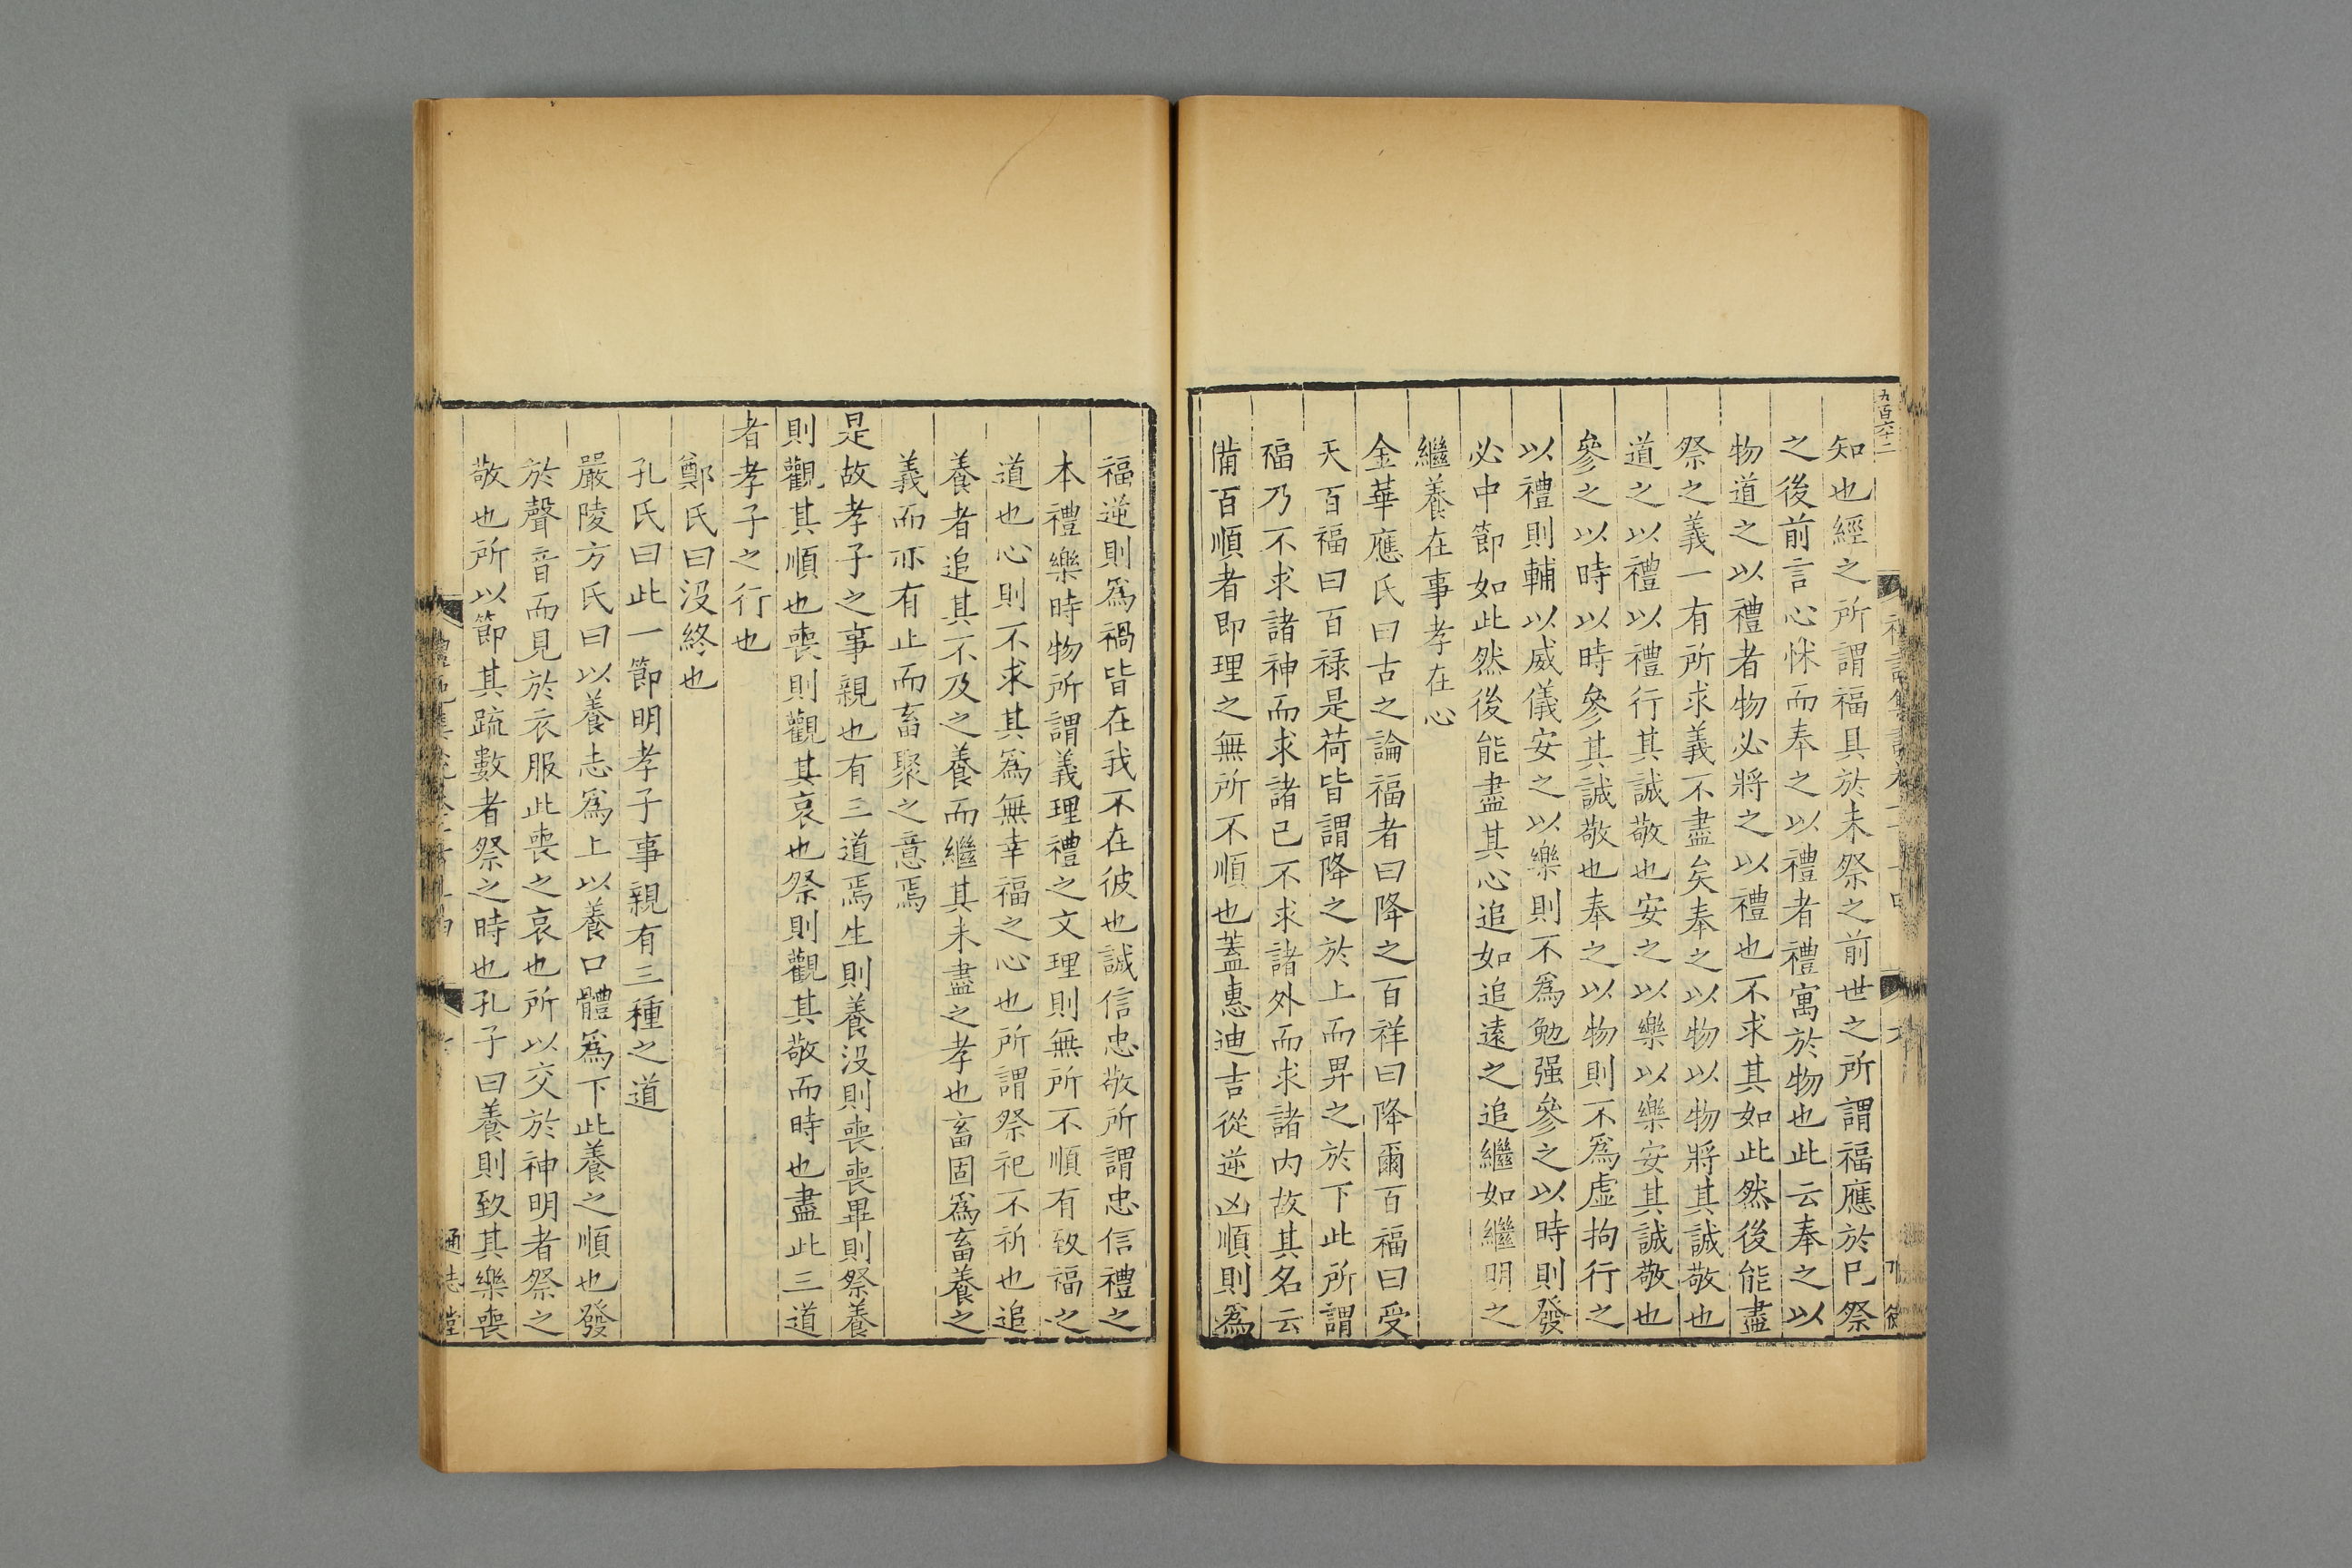 九百六十二
知也經之所謂福具於未祭之前世之所謂福應於已祭
之後前言心怵而奉之以禮者禮寓於物也此云奉之以
物道之以禮者物必將之以禮也不求其如此然後能盡
祭之義一有所求義不盡矣奉之以物以物將其誠敬也
道之以禮以禮行其誠敬也安之以樂以樂安其誠敬也
參之以時以時參其誠敬也奉之以物則不爲虛拘行之
以禮則輔以威儀安之以樂則不爲勉强參之以時則發
必中節如此然後能盡其心追如追遠之追繼如繼明之
繼養在事孝在心
金華應氏曰古之論福者曰降之百祥曰降爾百福曰受
天百福曰百祿是荷皆謂降之於上而畀之於下此所謂
福乃不求諸神而求諸己不求諸外而求諸内故其名云
備百順者即理之無所不順也蓋惠迪吉從逆凶順則爲
福逆則爲禍皆在我不在彼也誠信忠敬所謂忠信禮之
本禮樂時物所謂義理禮之文理則無所不順有致福之
道也心則不求其爲無幸福之心也所謂祭祀不祈也追
養者追其不及之養而繼其未盡之孝也畜固爲畜養之
義而亦有止而畜聚之意焉
是故孝子之事親也有三道焉生則養没則喪喪畢則祭養
則觀其順也喪則觀其哀也祭則觀其敬而時也盡此三道
者孝子之行也
鄭氏曰没終也
孔氏曰此一節明孝子事親有三種之道
嚴陵方氏曰以養志爲上以養口體爲下此養之順也發
於聲音而見於衣服此喪之哀也所以交於神明者祭之
敬也所以節其疏數者祭之時也孔子曰養則致其樂喪
通志堂